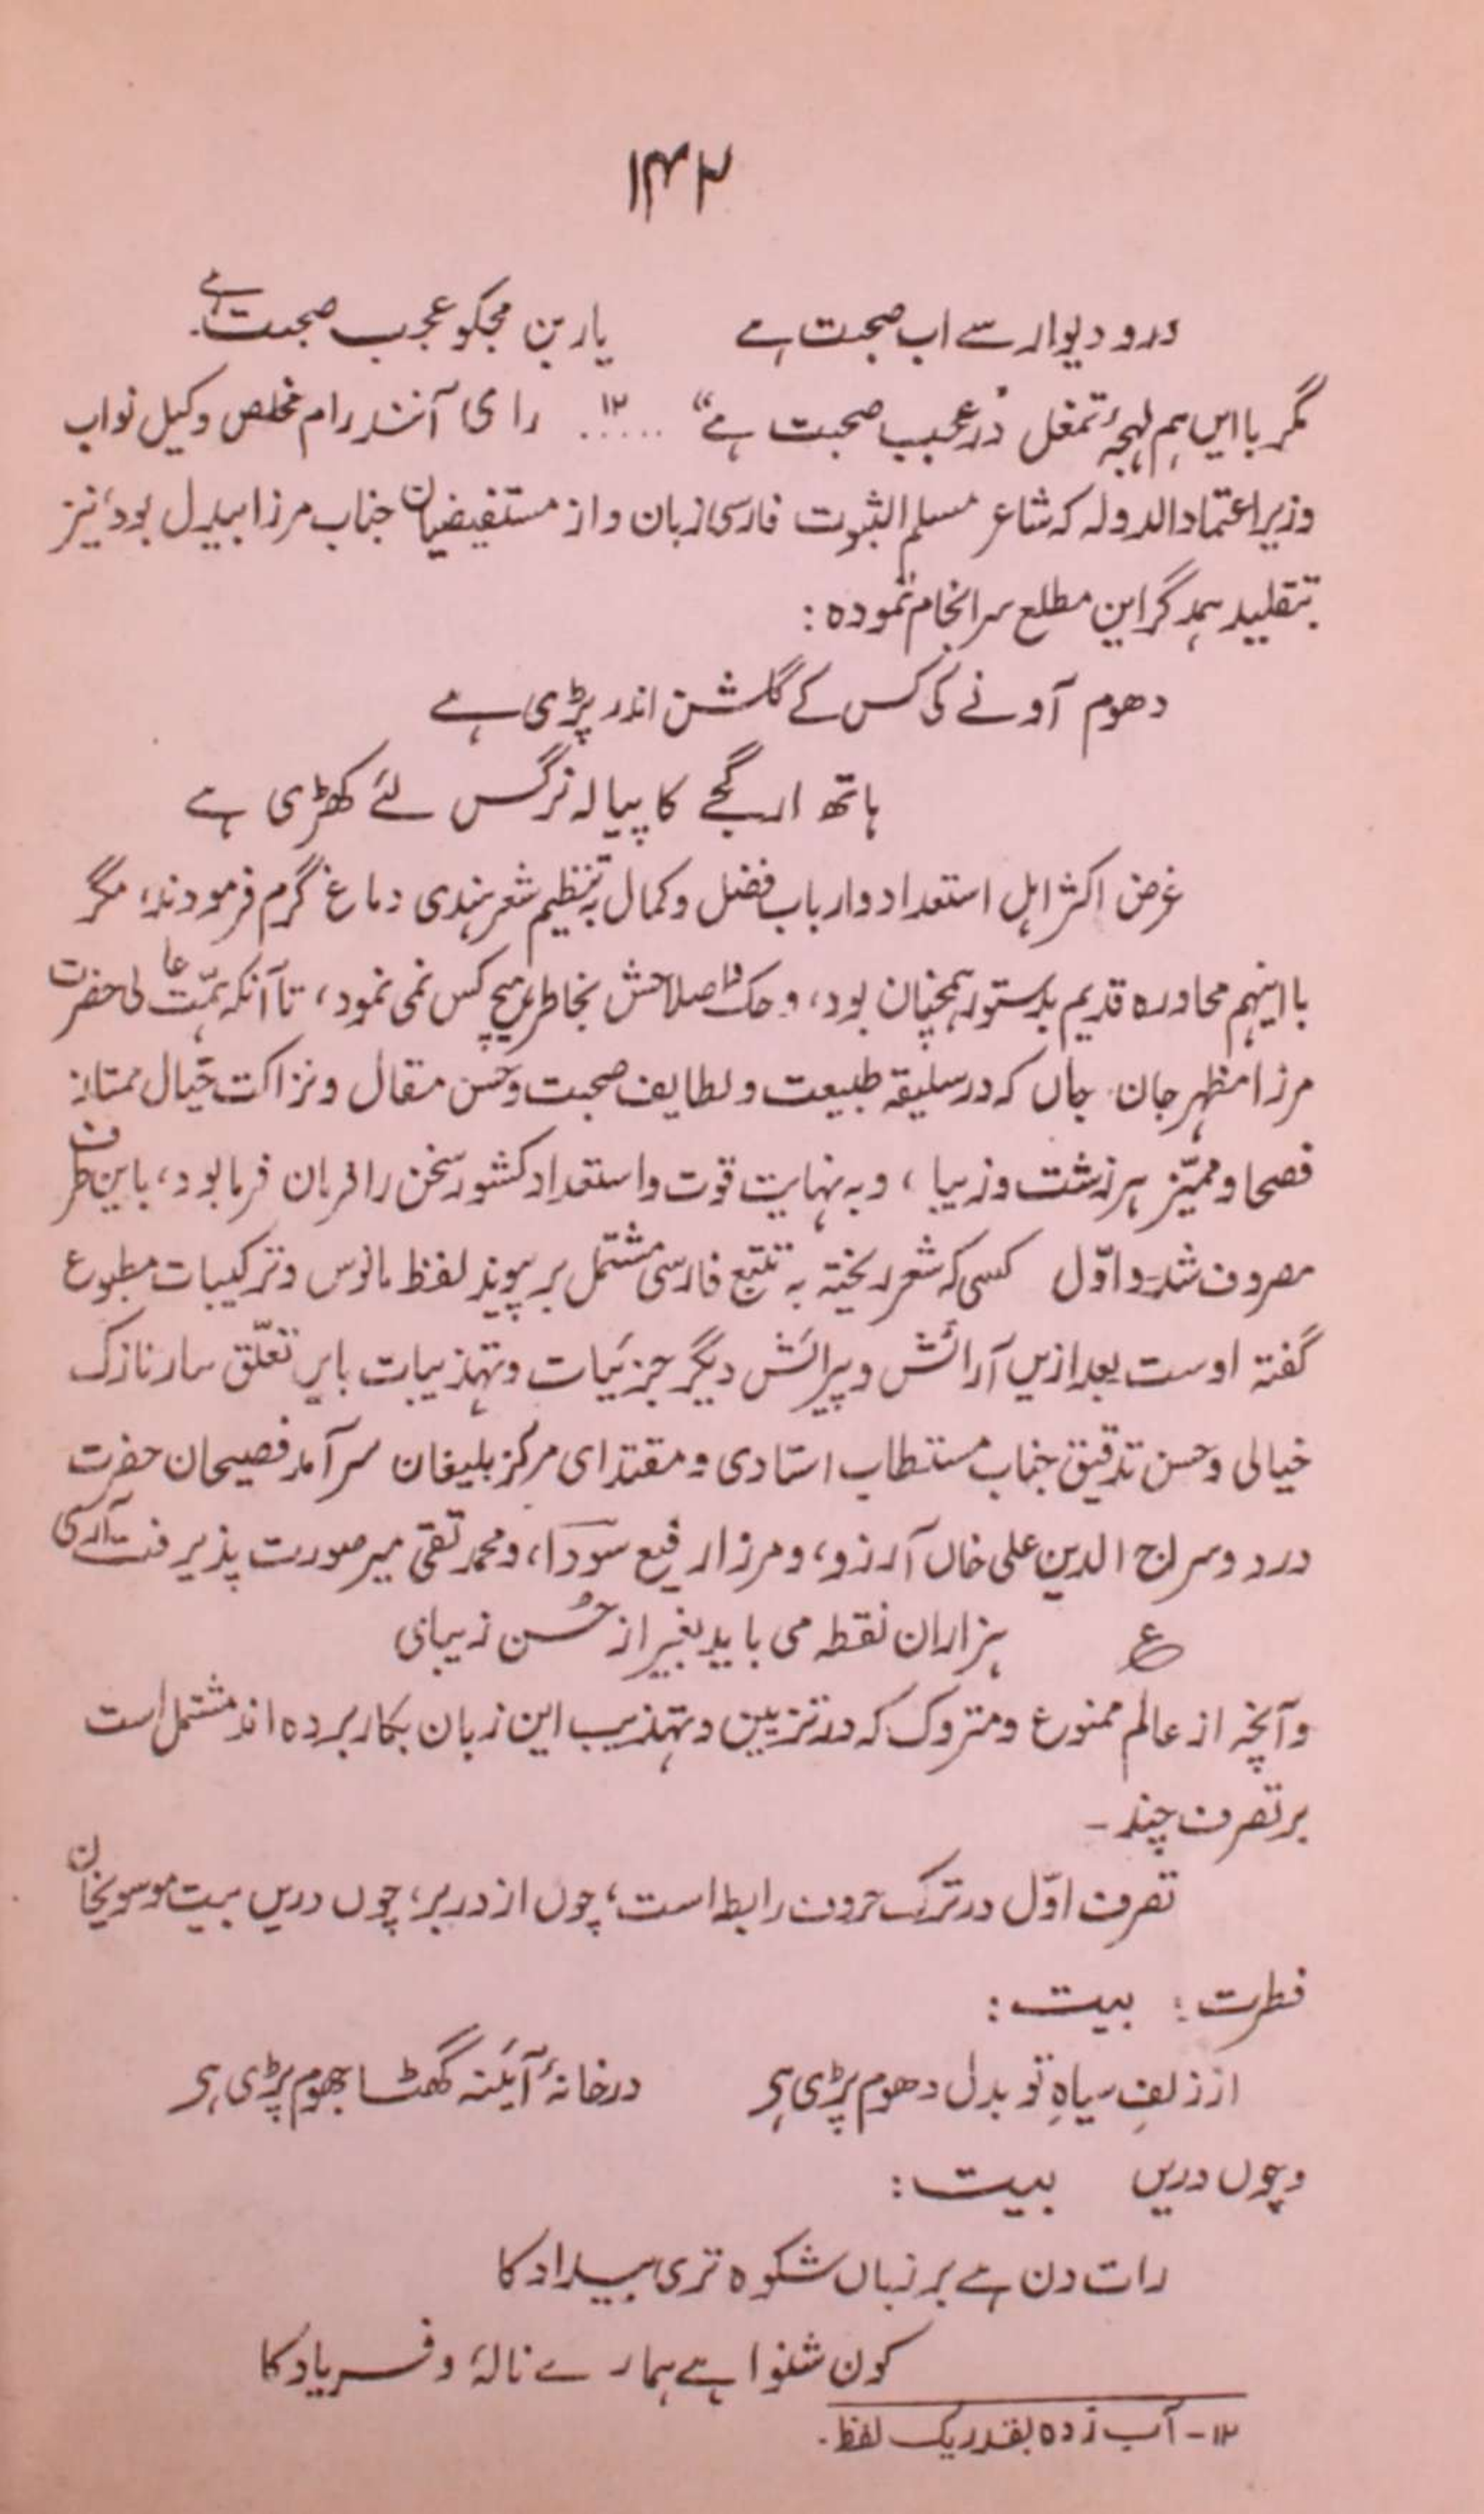 ۱۴۲
در و دیوار سے اب صحبت ہے یار بن مجکو عجب صحبت ہے۔
مگر باایں ہم لہجۂ تمغل در عجب صحبت ہے“ ..... ۱۲ رای آنند رام مخلص وکیل نواب
وزیر اعتماد الدولہ کہ شاعر مسلم الثبوت فارسی زبان و از مستفیضیان جناب مرزا بیدل بود، نیز
بتقلید ہمدگر این مطلع سرانجام نمودہ :
دھوم آونے کی کس کے گلشن اندر پڑی ہے
ہاتھ ارگجے کا پیالہ نرگس لئے کھڑی ہے
غرض اکثر اہل استعداد و ارباب فضل و کمال بہ تنظیم شعر ہندی دماغ گرم فرمودند، مگر
با اینہم محاورہ قدیم بدستور ہمچنان بود، و حک و اصلاحش بخاطر ہیچ کس نمی نمود، تا آنکہ ہمّت عالی حضرت
مرزا مظہر جان جاں کہ در سلیقہ طبیعت و لطایف صحبت و حسن مقال و نزاکت خیال ممتاز
فصحا و ممیّز ہر زشت و زیبا، و بہ نہایت قوت و استعداد کشور سخن را فرمان فرما بود، باین طرف
مصروف شد۔ و اوّل کسی کہ شعر ریختہ بہ تتبع فارسی مشتمل بر پیوند لفظ مانوس و ترکیبات مطبوع
گفتہ اوست بعد ازیں آرائش و پیرائش دیگر جزئیات و تہذیبات بایں تعلّق سار نازک
خیالی و حسن تدقیق جناب مستطاب استادی و مقتدای مرکز بلیغان سرآمد فصیحان حضرت
درد و سراج الدین علی خاں آرزو، و مرزا رفیع سودا، و محمد تقی میر صورت پذیرفت آری
ع ہزاران نقطہ می باید بغیر از حُسن زیبای
و آنچہ از عالم ممنوع و متروک کہ در تزیین و تہذیب این زبان بکار بردہ اند مشتمل است
بر تصرف چند ۔
تصرف اوّل در ترک حروف رابط است، چوں از در بر، چوں دریں بیت موسویخان
فطرت : بیت :
از زلفِ سیاہِ تو بدل دھوم پڑی ہے در خانۂ آئنہ گھٹا جھوم پڑی ہے
و چوں دریں بیت :
رات دن ہے بر زباں شکوہ تری بیداد کا
کون شنوا ہے ہمارے نالۂ و فریاد کا
۱۲۔ آب زدہ بقدر یک لفظ ۔